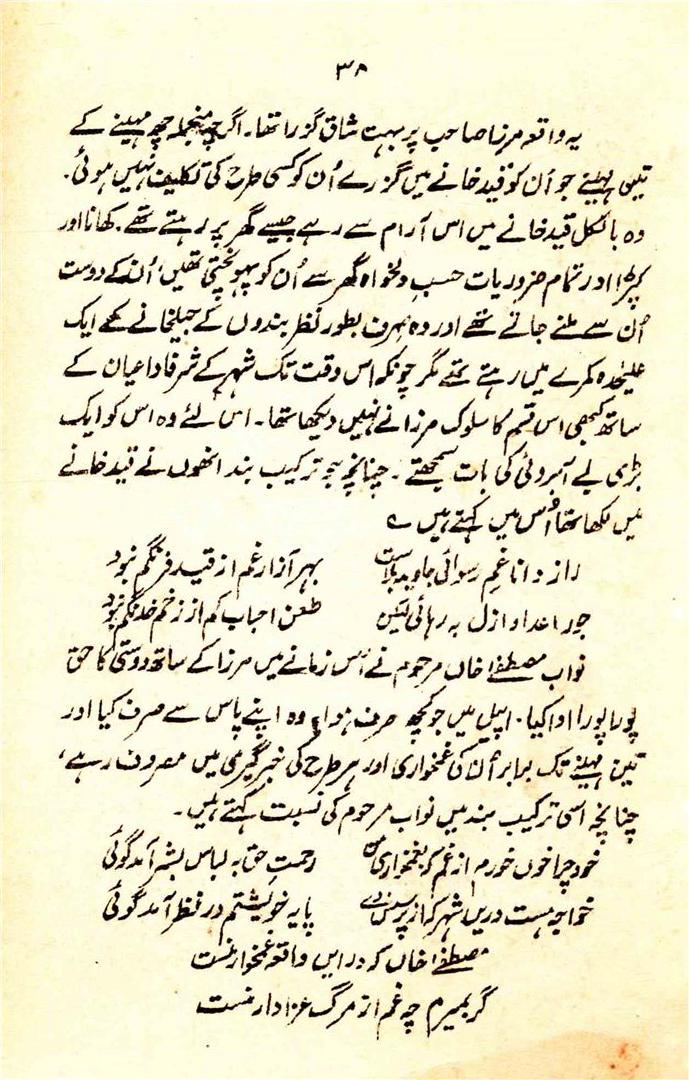 ۳۸
یہ واقعہ مرزا صاحب پر بہت شاق گزرا تھا۔ اگرچہ منجملہ چھ مہینے کے
تین مہینے جو اُن کو قید خانے میں گزرے اُن کو کسی طرح کی تکلیف نہیں ہوئی۔
وہ بالکل قید خانے میں اس آرام سے رہے جیسے گھر پر رہتے تھے۔ کھانا اور
کپڑا اور تمام ضروریات حسبِ دلخواہ گھر سے اُن کو پہونچتی تھیں، اُن کے دوست
اُن سے ملنے جاتے تھے اور وہ صرف بطور نظر بندوں کے جیلخانے کے ایک
علیٰحدہ کمرے میں رہتے تھے مگر چونکہ اس وقت تک شہر کے شرفا و اعیان کے
ساتھ کبھی اس قسم کا سلوک مرزا نے نہیں دیکھا تھا۔ اس لئے وہ اس کو ایک
بڑی بے آبروئی کی بات سمجھتے۔ چنانچہ جو ترکیب بند انھوں نے قید خانے
میں لکھا تھا اُس میں کہتے ہیں ؎
راز دانا غمِ رسوائی جاوید بلاست بہر آزار غم از قید فرنگم نبود
جور اعدا و ازل بہ رہائی لیکن طعن احباب کم از زخم خدنگم نبود
نواب مصطفےٰ خاں مرحوم نے اُس زمانے میں مرزا کے ساتھ دوستی کا حق
پورا پورا ادا کیا۔ اپیل میں جو کچھ صرف ہوا، وہ اپنے پاس سے صرف کیا اور
تین مہینے تک برابر اُن کی غمخواری اور ہر طرح کی خبرگیری میں مصروف رہے،
چنانچہ اسی ترکیب بند میں نواب مرحوم کی نسبت کہتے ہیں۔
خود چرا خوں خورم از غم کہ بغمخواری من رحمتِ حق بہ لباس بشر آمد گوئی
خواجہ ہست دریں شہر کہ از پرسش وے پایہ خویشتنم در نظر آمد گوئی
مصطفےٰ خاں کہ دراں واقعہ غمخوار منست
گر بمیرم چہ غم از مرگ عزادار منست